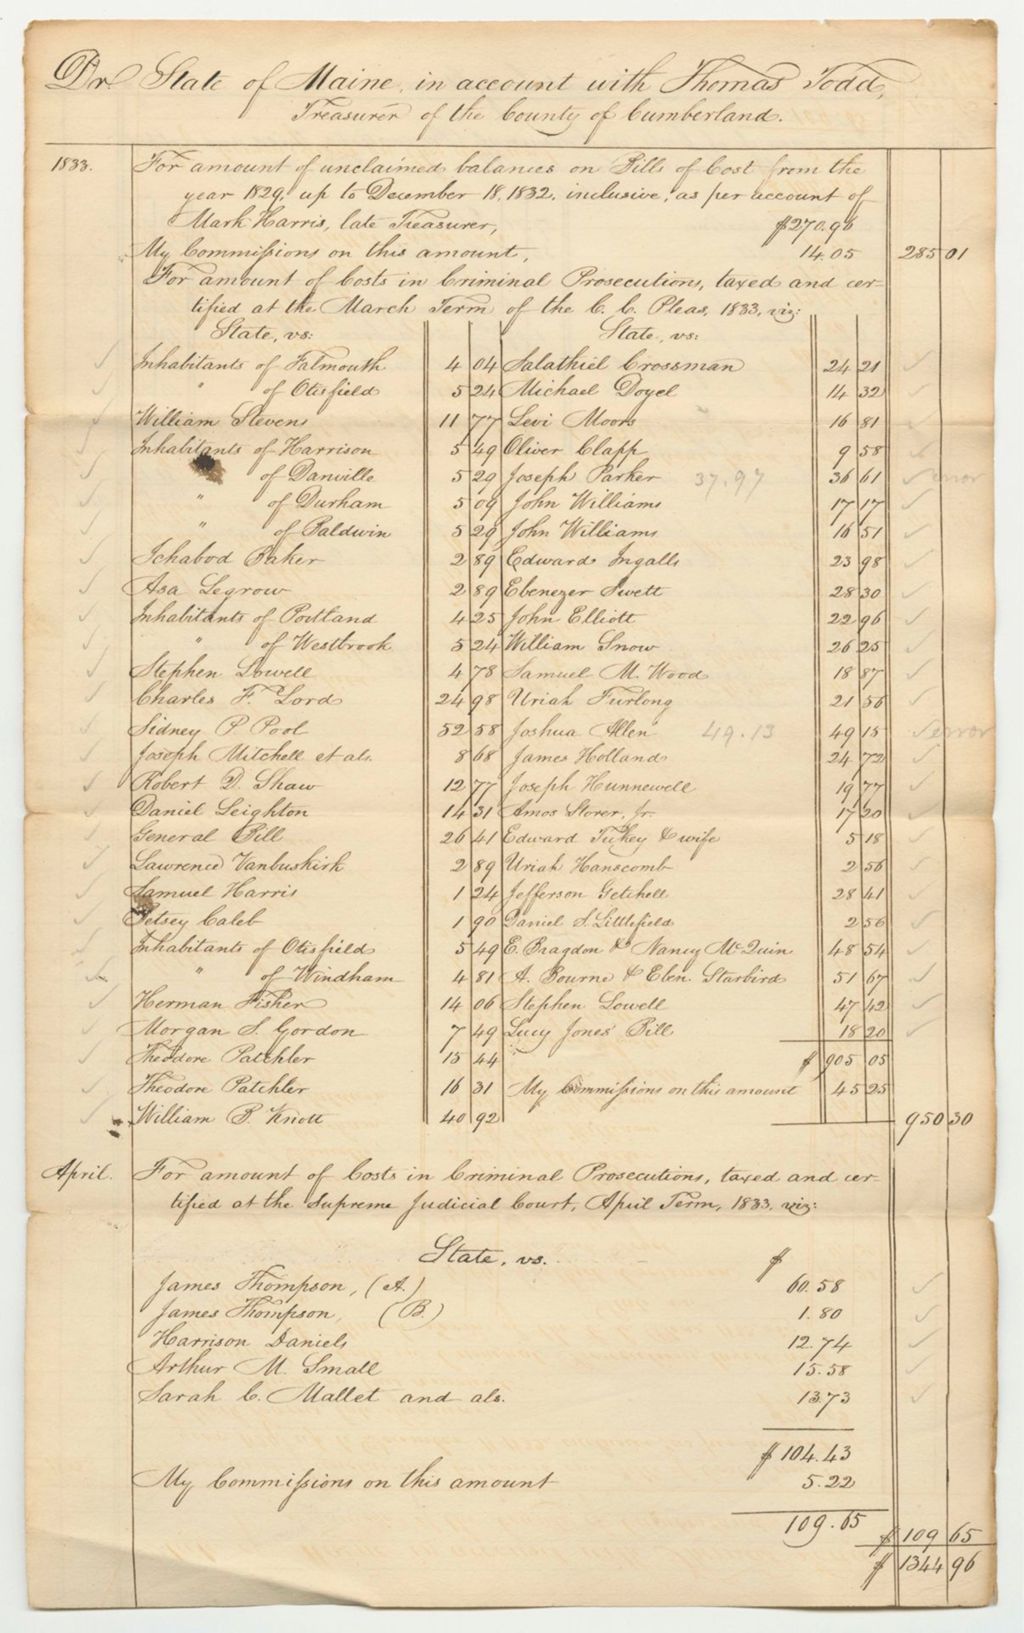 Dr State of Maine, in account with Thomas Todd,
Treasurer of the County of Cumberland.
1833. For amount of unclaimed balances on Bills of Cost from the
year 1829, up to December 18, 1832, inclusive, as per account of
Mark Harris, late Treasurer, $270.96
My Commissions on this amount, 14.05 285 01
For amount of Costs in Criminal Prosecutions, taxed and cer-
tified at the March Term of the C. C. Pleas, 1833, viz:
State, vs: State, vs:
Inhabitants of Falmouth 4 04 Salathiel Crossman 24 21
" of Otisfield 5 24 Michael Doyel 14 32
William Stevens 11 77 Levi Moors 16 81
Inhabitants of Harrison 5 49 Oliver Clapp 9 58
of Danville 5 29 Joseph Parker 37.97 36 61 error
" of Durham 5 09 John Williams 17 17
" of Baldwin 5 29 John Williams 16 51
Ichabod Baker 2 89 Edward Ingalls 23 98
Asa Legrow 2 89 Ebenezer Swett 28 30
Inhabitants of Portland 4 25 John Elliott 22 96
" of Westbrook 5 24 William Snow 26 25
Stephen Lowell 4 78 Samuel M. Wood 18 87
Charles F. Lord 24 98 Uriah Furlong 21 56
Sidney P. Pool 52 58 Joshua Allen 49.13 49 15 error
Joseph Mitchell et als. 8 68 James Holland 24 72
Robert D. Shaw 12 77 Joseph Hunnewell 19 77
Daniel Leighton 14 31 Amos Storer, Jr. 17 20
General Bill 26 41 Edward Tukey & wife 5 18
Lawrence Vanbuskirk 2 89 Uriah Hanscomb 2 56
Samuel Harris 1 24 Jefferson Getchell 28 41
Betsey Caleb 1 90 Daniel S. Littlefield 2 56
Inhabitants of Otisfield 5 49 E. Bragdon & Nancy McQuin 48 54
" of Windham 4 81 A. Bourne & Eben. Starbird 51 67
Herman Fisher 14 06 Stephen Lowell 47 42
Morgan S. Gordon 7 49 Lucy Jones' Bill 18 20
Theodore Patchler 15 44 $ 905 05
Theodore Patchler 16 31 My Commissions on this amount 45 25
William B. Knott 40 92 950 30
April. For amount of Costs in Criminal Prosecutions, taxed and cer-
tified at the Supreme Judicial Court, April Term, 1833, viz:
State, vs. $
James Thompson, (A.) 60.58
James Thompson, (B.) 1.80
Harrison Daniels 12.74
Arthur M. Small 15.58
Sarah C. Mallet and als. 13.73
$ 104.43
My Commissions on this amount 5.22
109.65 $ 109 65
$ 1344 96